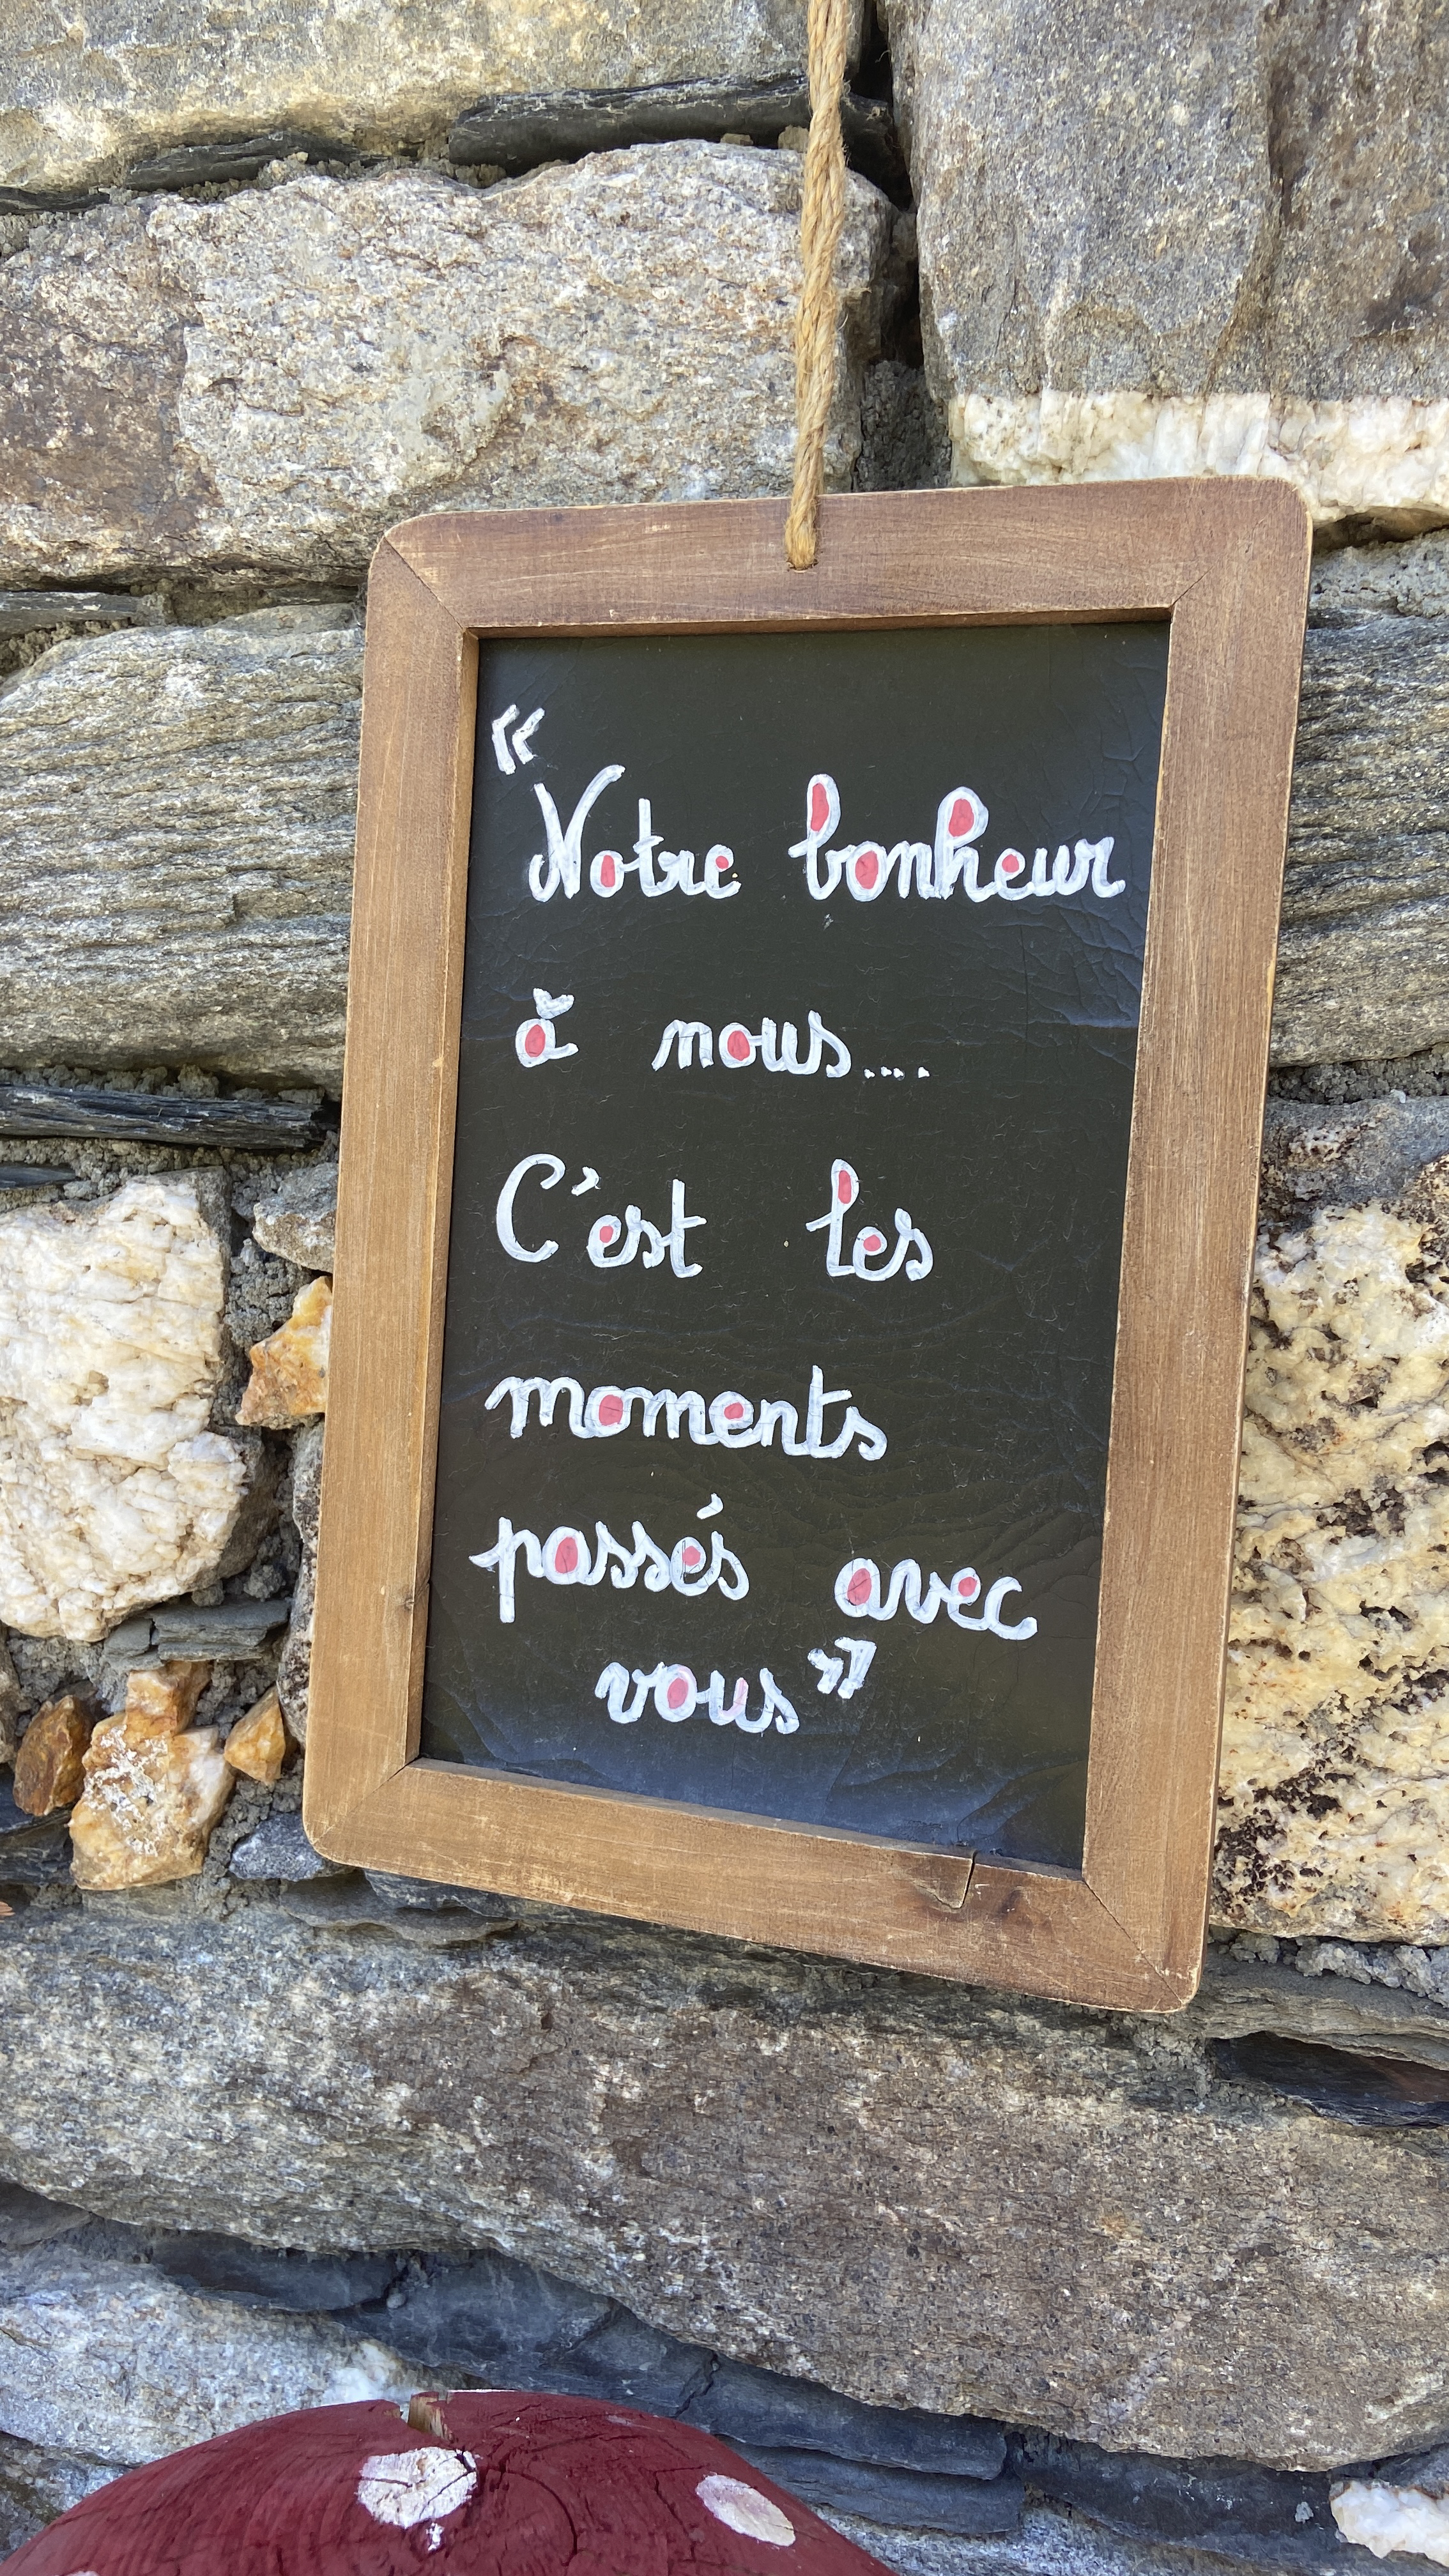 “Notre bonheur
à nous....
C'est les
moments
passés avec
vous”